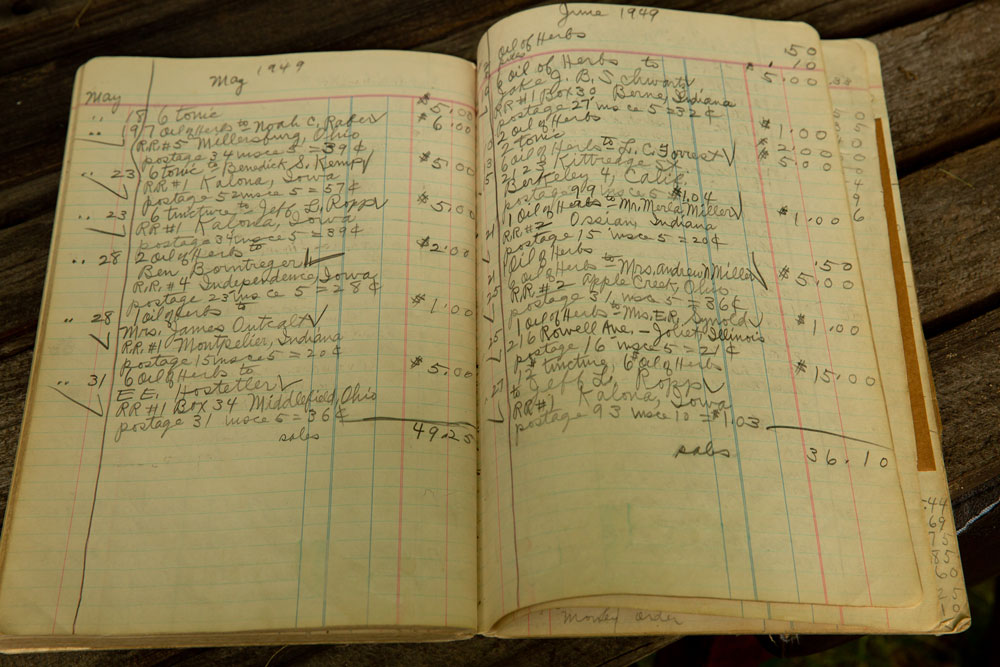 May 1949
May
" 18 6 tonic $5.00
" 19 7 Oil of Herbs to Noah C. Raber $6.00
RR#5 Millersburg, Ohio
postage 34 msce 5 = 39¢
" 23 6 tonic to Benedick S. Kemp $5.00
RR#1 Kalona, Iowa
postage 52 msce 5 = 57¢
" 23 6 tincture to Jeff L. Ropp $5.00
RR#1 Kalona, Iowa
postage 34 msce 5 = 39¢
" 28 2 oil of Herbs to $2.00
Ben, Borntreger
RR.#4 Independence, Iowa
postage 23 msce 5 = 28¢
" 28 1 oil of Herbs to $1.00
Mrs. James Outcalt
RR.#1 Montpelier, Indiana
postage 15 msce 5 = 20¢
" 31 6 Oil of Herbs to $5.00
E.E. Hostetler
RR#1 Box 34 Middlefield, Ohio
postage 31 msce 5 = 36¢
sales 49.25
June 1949
oil of Herbs 50
.10
6 oil of Herbs to $5.00
Jake J. B. Schwartz
RR#1 Box 30 Berne, Indiana
postage 27 msce 5 = 32¢
2 oil of Herbs $1.00
2 tonic $2.00
6 oil of Herbs to L. C. Forrest $5.00
2123 Kittredge St
Berkeley 4, Calif.
postage 99 msce 5 $1.04
1 Oil of Herbs to Mr. Morla Miller $1.00
RR#2 Ossian, Indiana
postage 15 msce 5 = 20¢
oil of Herbs .50
6 oil of Herbs to Mrs. Andrew N Miller $5.00
RR#2 Apple Creek, Ohio
postage 31 msce 5 = 36¢
1 oil of Herbs to Ms. E.R. Synold $1.00
216 Rowell Ave, - Joliet, Illinois
postage 16 msce 5 = 21¢
12 tincting, 6 oil of Herbs $15.00
to Jeff L. Ropp
RR#1 Kalona, Iowa
postage 93 msce 10 = $1.03
sales 36.10
Money order
.44
69
75
85
60
25
10